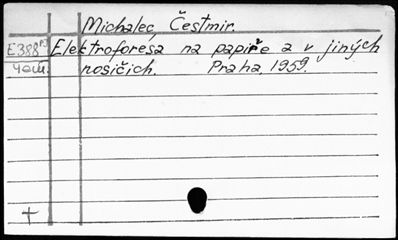 Michalec, Čestmir.
E388 Elektroforesa na papiře a v jiných
nosičích. Praha, 1959.